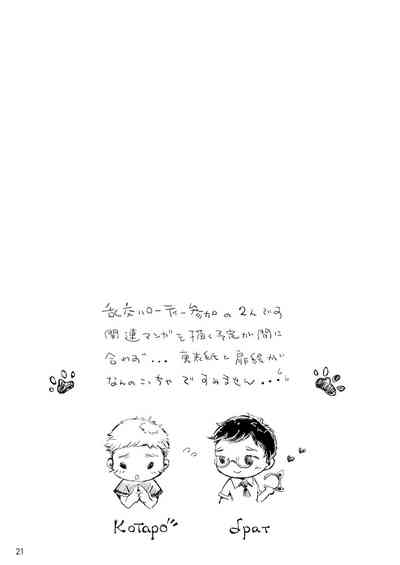 乱交パーティー参加の2人です
関連マンガを描く予定が間に
合わず… 裏表紙と扉絵が
なんのこっちゃですみません…
Kotaro
брат
21